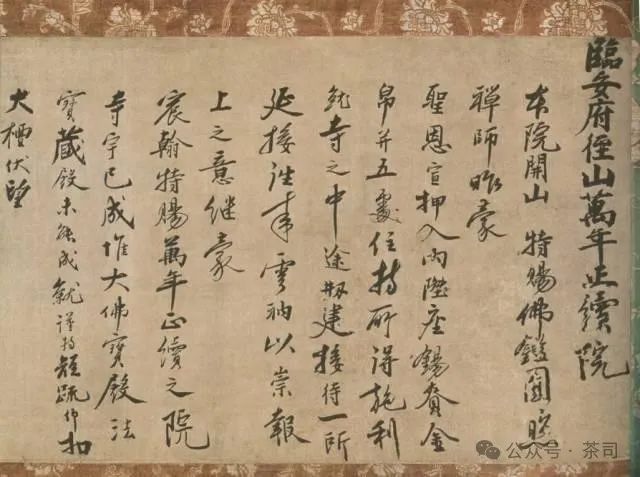 臨安府徑山萬年正續院
本院開山 特賜佛鑑圓照
禪師昨蒙
聖恩宣押入內陞座錫賚金
帛并五處住持所得施利
就寺之中途剏建接待一所
延接往來雲衲以崇報
上之意繼蒙
宸翰特賜萬年正續之院
寺宇已成惟大佛寶殿法
寶藏殿未能成就謹持短疏仰扣
大檀伏望
公众号·茶司